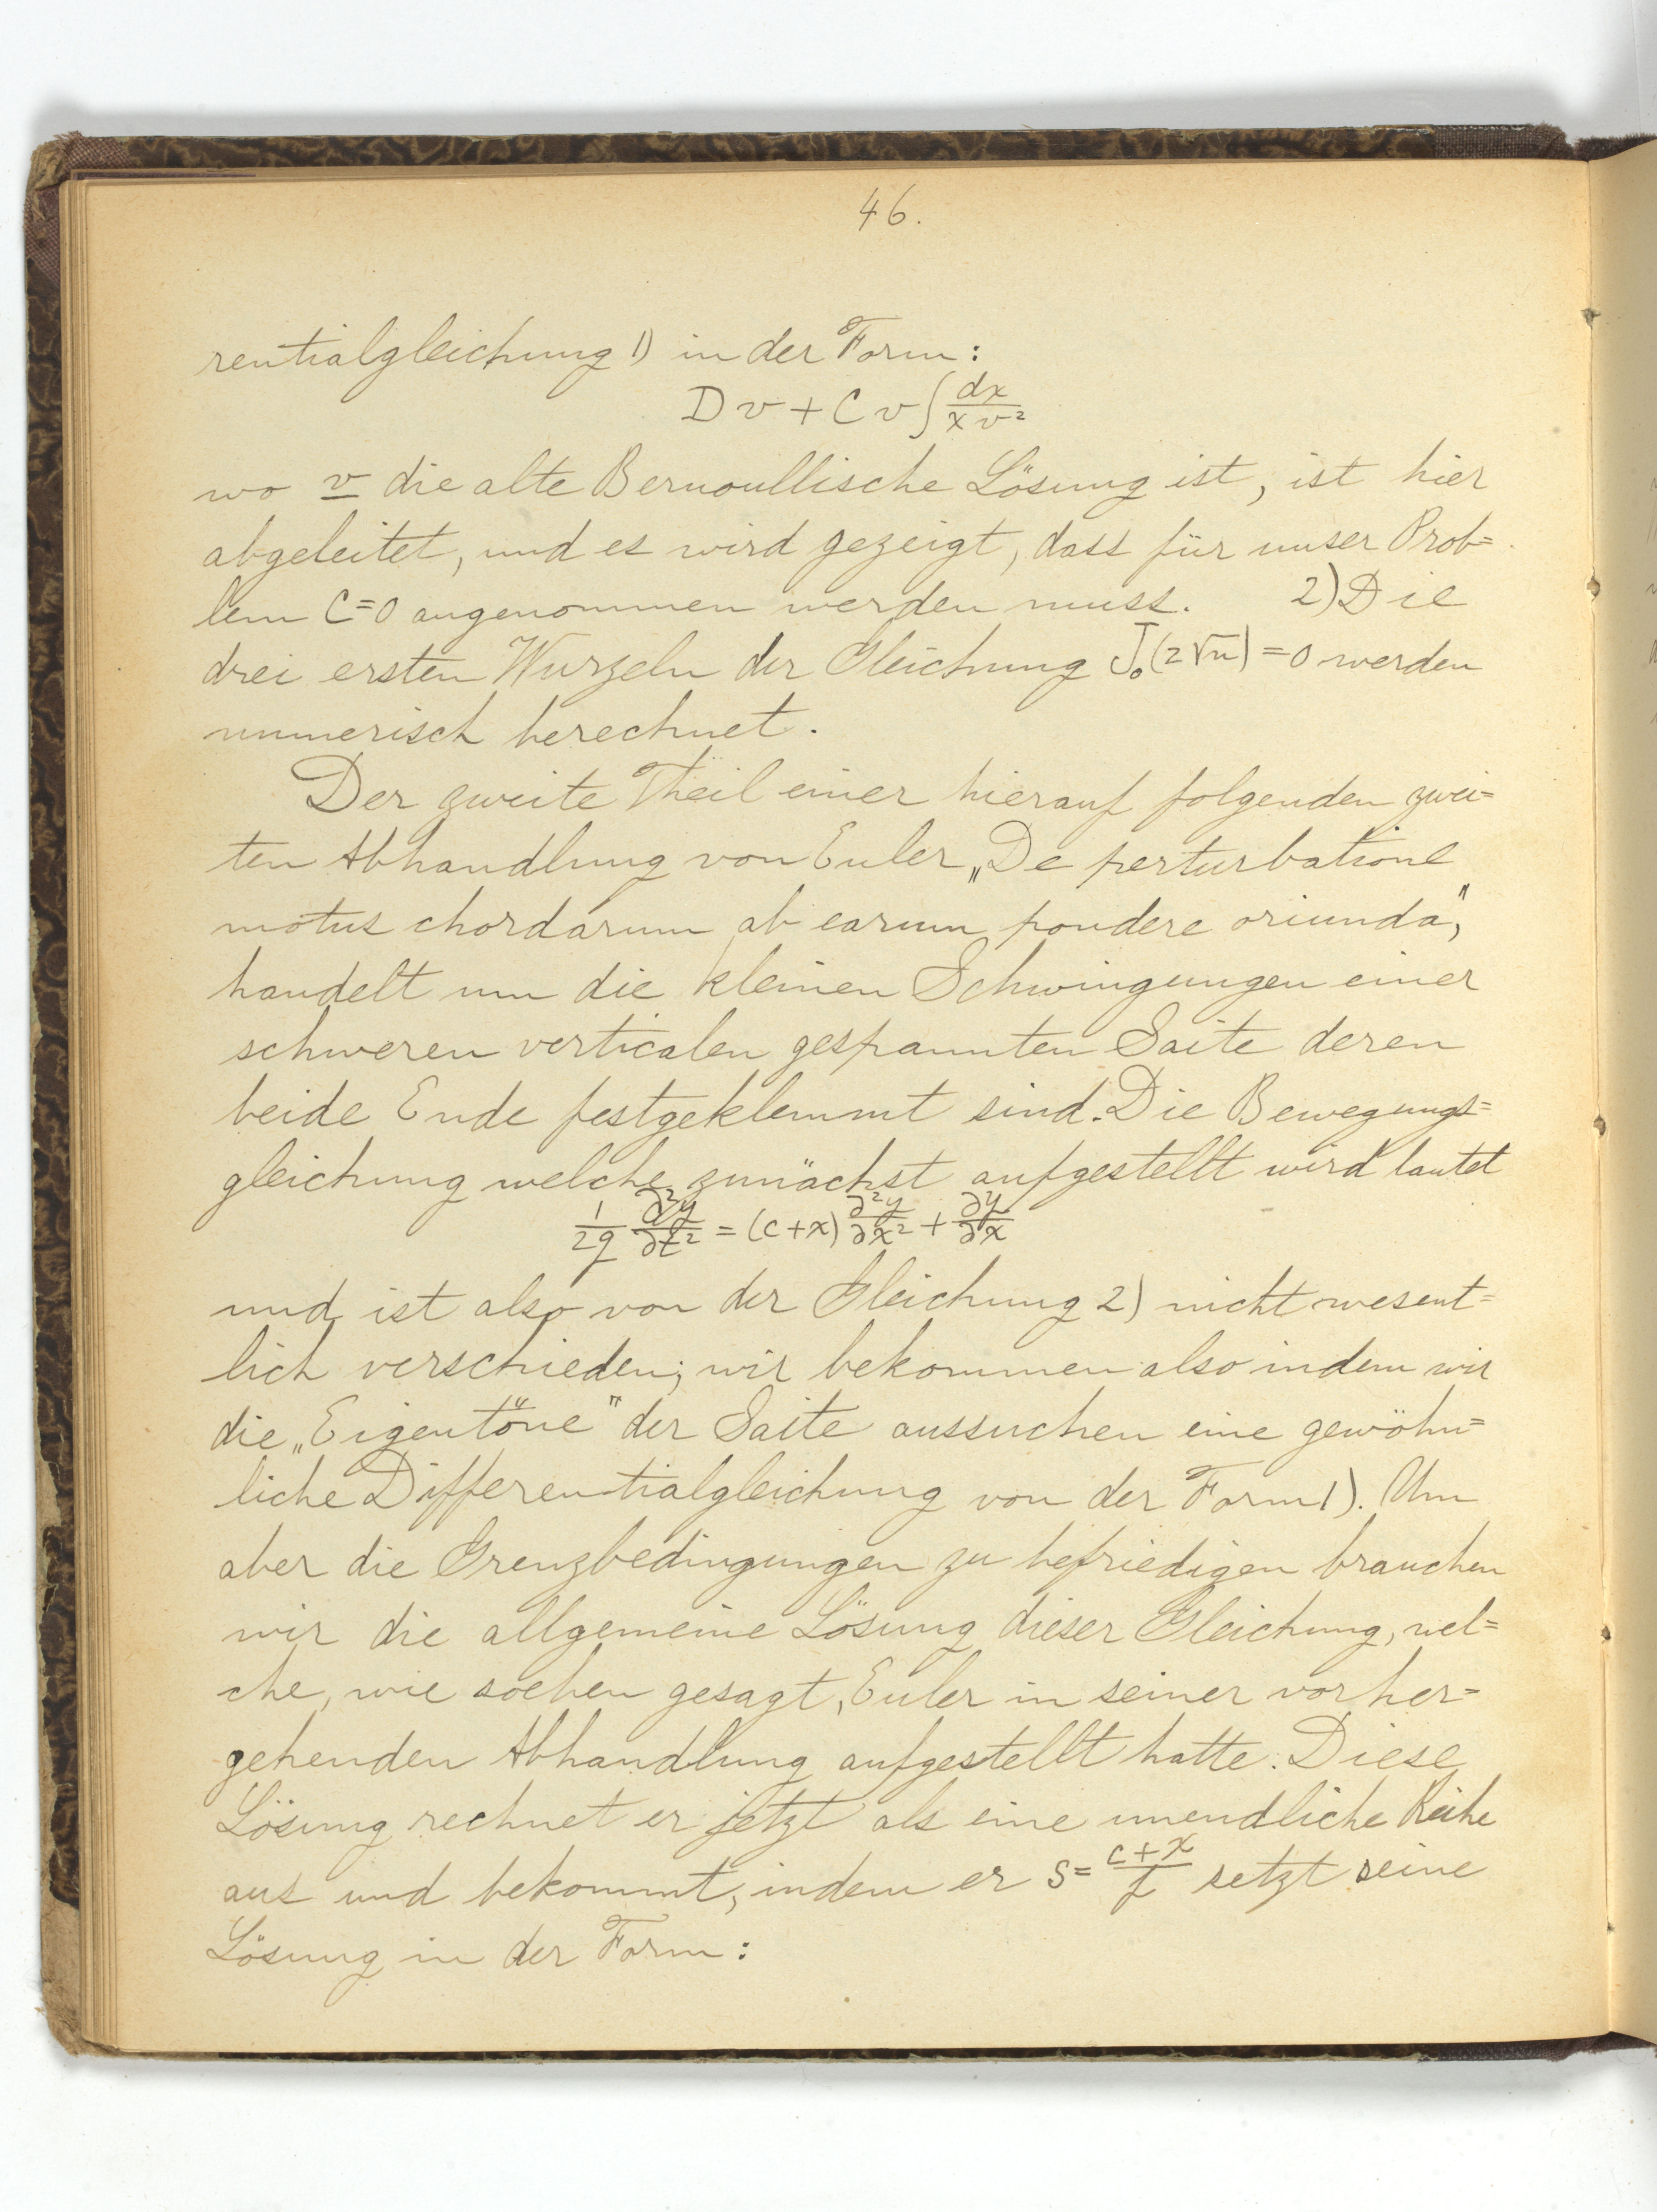 46.
rentialgleichung 1) in der Form:
Dv + Cv ∫ dx / x v²
wo v die alte Bernoullische Lösung ist, ist hier
abgeleitet, und es wird gezeigt, dass für unser Prob=
lem C=0 angenommen werden muss. 2) Die
drei ersten Wurzeln der Gleichung J₀(2√u)=0 werden
numerisch berechnet.
Der zweite Theil einer hierauf folgenden zwei=
ten Abhandlung von Euler „De perturbatione
motus chordarum ab earum pondere oriunda",
handelt um die kleinen Schwingungen einer
schweren verticalen gespannten Saite deren
beide Ende festgeklemmt sind. Die Bewegungs=
gleichung welche zunächst aufgestellt wird lautet
1/2g ∂²y/∂t² = (c+x) ∂²y/∂x² + ∂y/∂x
und ist also von der Gleichung 2) nicht wesent=
lich verschieden; wir bekommen also indem wir
die „Eigentöne" der Saite aussuchen eine gewöhn=
liche Differentialgleichung von der Form 1). Um
aber die Grenzbedingungen zu befriedigen brauchen
wir die allgemeine Lösung dieser Gleichung, wel=
che, wie soeben gesagt, Euler in seiner vorher=
gehenden Abhandlung aufgestellt hatte. Diese
Lösung rechnet er jetzt als eine unendliche Reihe
aus und bekommt, indem er s= c+x / f setzt seine
Lösung in der Form: